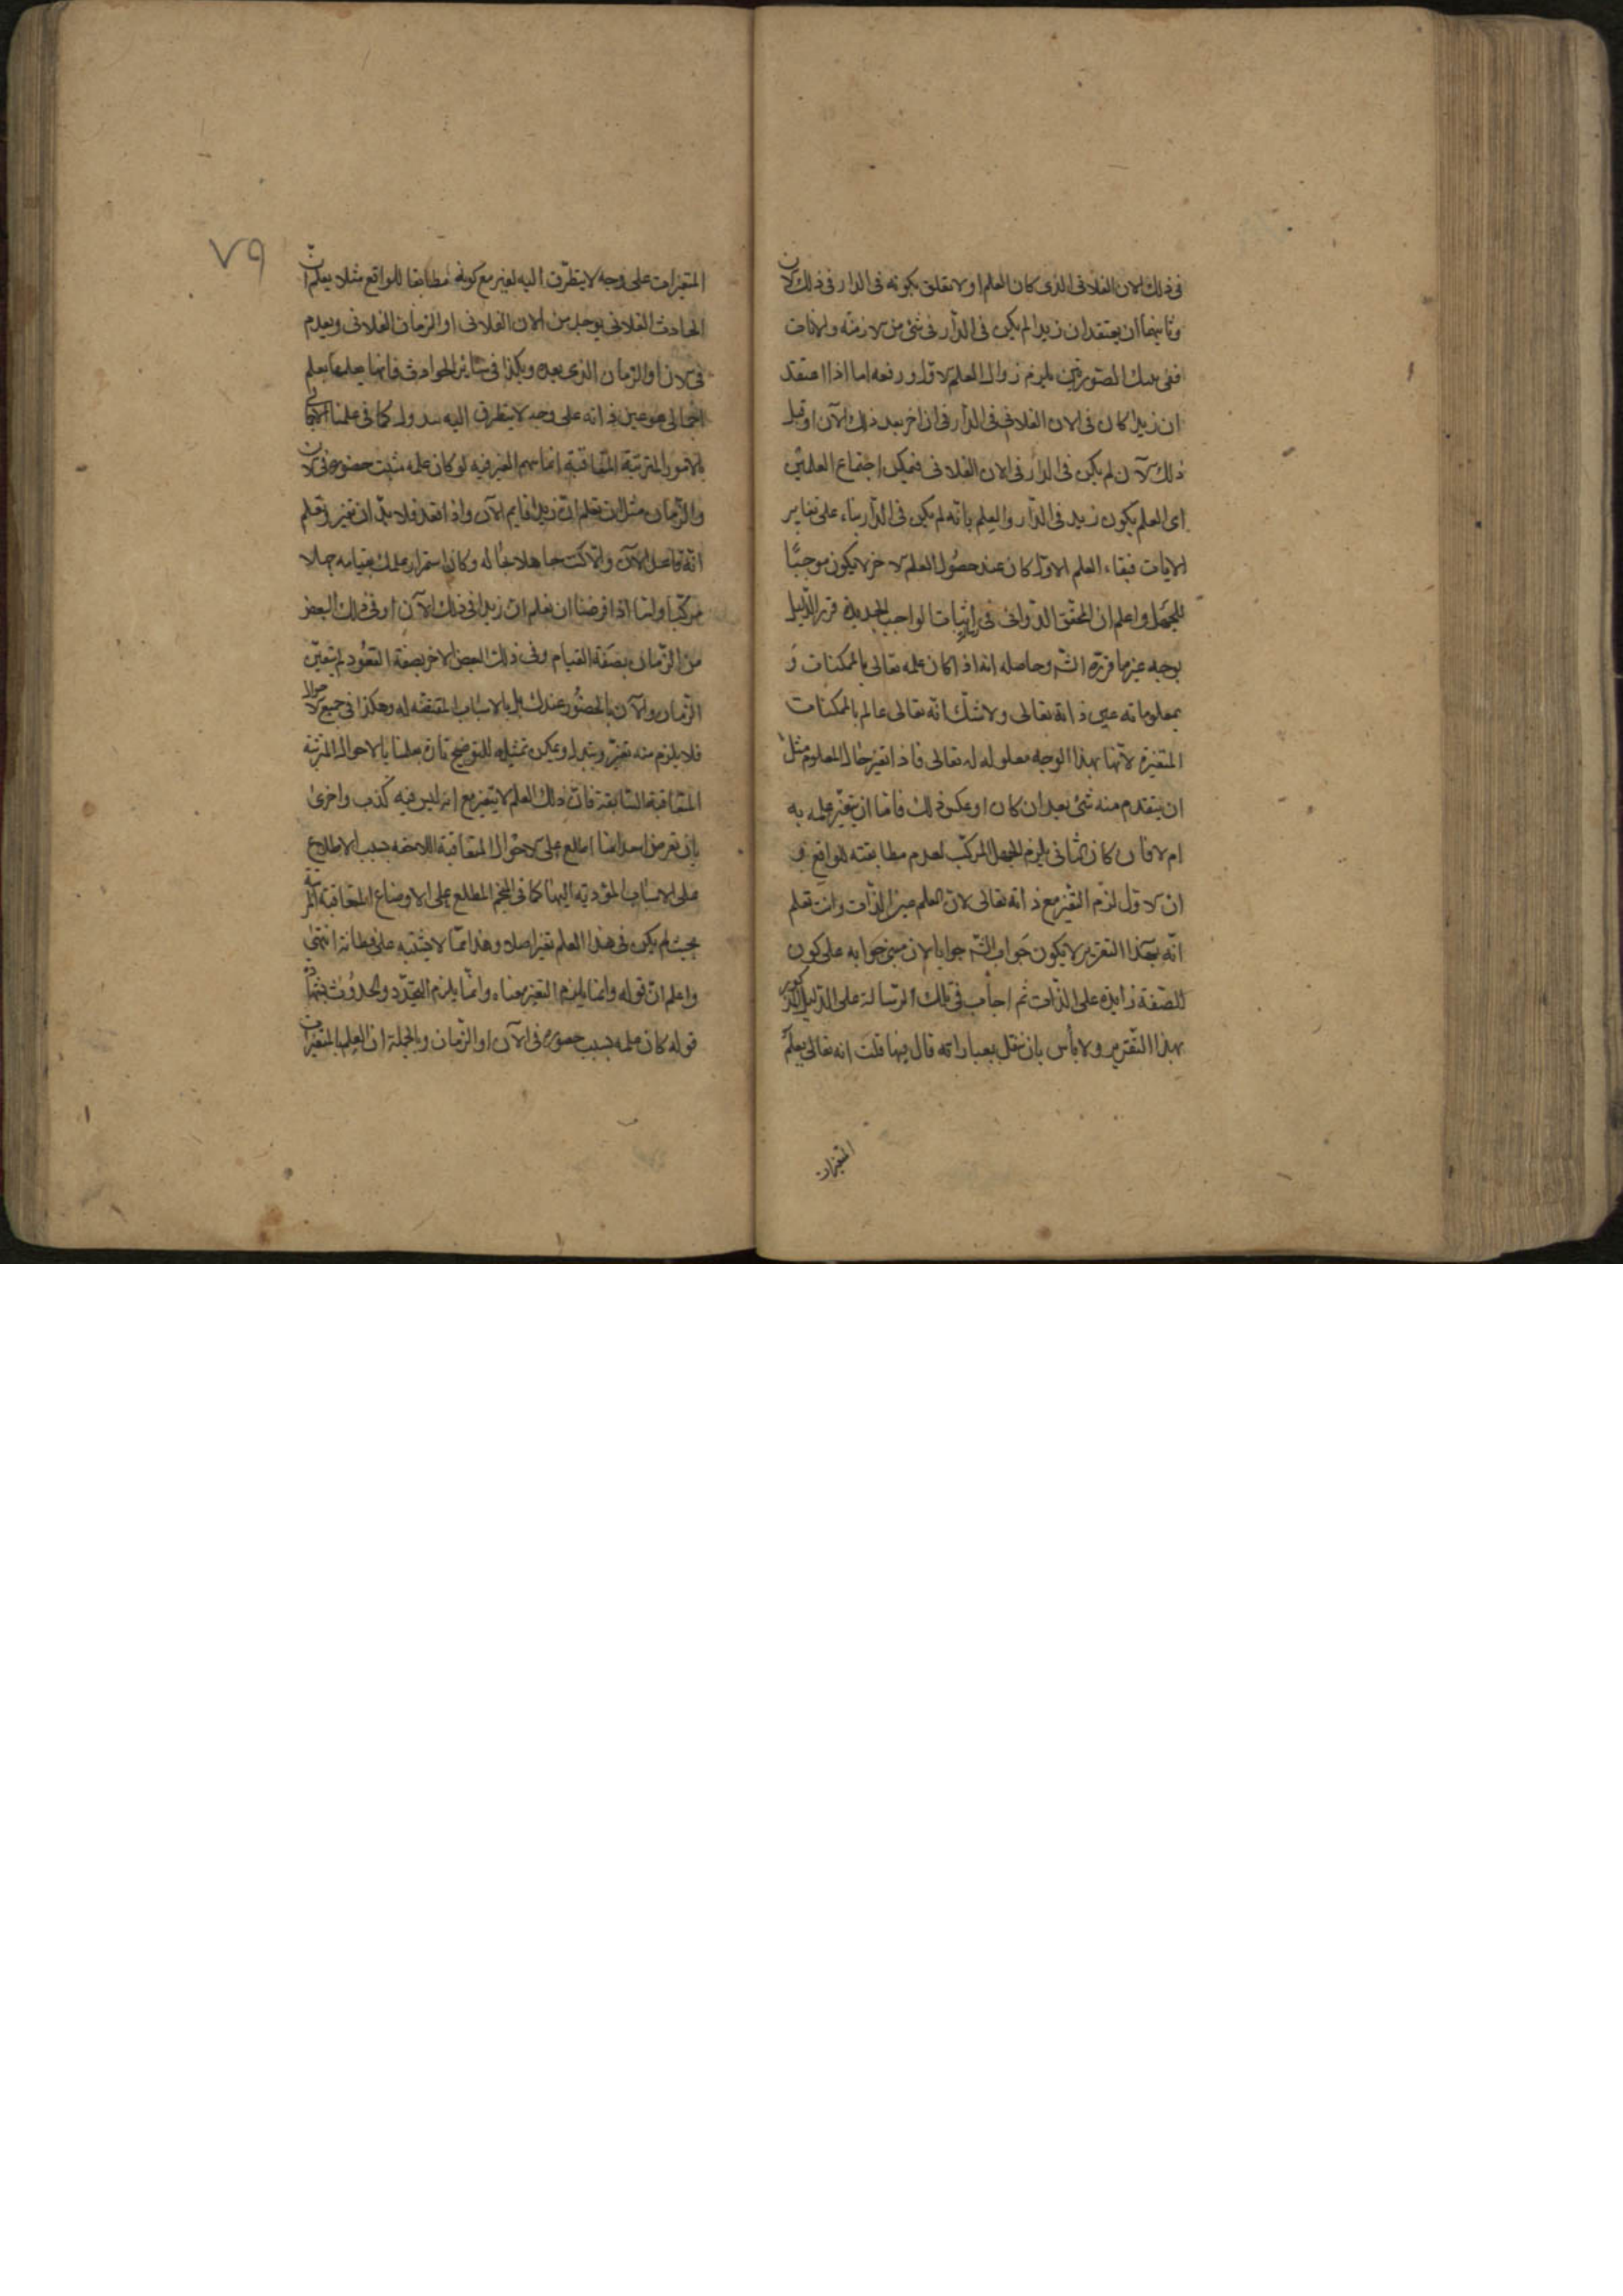 فى ذلك الان الفلانى الذى كان العلم اولا تعلق بكونه فى الدار فى ذلك الان
وثانيهما ان يعتقد ان زيدا لم يكن فى الدار فى شئ من الازمنة والانات
ففى تلك الصورتين يلزم زوال العلم الاول ورفعه اما اذا اعتقد
ان زيدا كان فى الان الفلانى فى الدار فى ان اخر بعد ذلك الآن او قبل
ذلك الآن لم يكن فى الدار فى الان الفلانى فيمكن اجتماع العلمين
اى العلم بكون زيد فى الدار والعلم بانه لم يكن فى الدار بناء على تغاير
الانات فبقاء العلم الاول كان عند حصول العلم الاخر لا يكون موجبا
للجهل واعلم ان المحقق الدوانى فى اثبات الواجب الجديدة قرر الدليل
بوجه غير ما قرره الش وحاصله انه اذا كان علمه تعالى بالممكنات و
بمعلوماته عين ذاته تعالى ولا شك انه تعالى عالم بالممكنات
المتغيرة لانها بهذا الوجه معلولة له تعالى فاذا تغير حال المعلوم مثل
ان ينعدم منه شئ بعد ان كان او عكس ذلك فاما ان يتغير علمه به
ام لا فان كان الثانى يلزم الجهل المركب لعدم مطابقته للواقع و
ان الاول لزم التغير مع ذاته تعالى لان العلم عين الذات وانت تعلم
انه بهذا التقرير لا يكون جواب الش جوابا لان مبنى جوابه على كون
الصفة زايدة على الذات ثم اجاب فى تلك الرسالة على الدليل المذكور
بهذا التقرير ولا بأس بان ننقل بعباراته قال فيها قلت انه تعالى يعلم
المتغيرات
٧٩
المتغيرات على وجه لا يتطرق اليه تغير مع كونه مطابقا للواقع مثلا يعلم ان
الحادث الفلانى يوجد من الان الفلانى او الزمان الفلانى ويعدم
فى الان او الزمان الذى بعده وهكذا فى سائر الحوادث فانها يعلمها بعلم
اجمالى هو عين ذاته على وجه لا يتطرق اليه تبدل كما فى علمنا الاجمالى
بالامور المترتبة المتعاقبة انما يتغير فيه لو كان علمه بسبب حضوره فى الان
والزمان مثل ان تعلم ان زيدا قايم الآن واذا قعد فلا بد ان تغير وتعلم
انه قاعد الآن والا كنت جاهلا بحاله وكان استمرار علمك بقيامه جهلا
مركبا ولنا اذا فرضنا ان نعلم ان زيدا فى ذلك الآن او فى ذلك البعض
من الزمان بصفة القيام وفى ذلك البعض الاخر بصفة القعود لم يتعين
الزمان والآن بالحضور عندك بل بالاسباب المقتضية له وهكذا فى جميع الاحوال
فلا يلزم منه تغير وتبدل ويمكن تمثيله للتوضيح تارة بعلمنا بالاحوال المترتبة
المتعاقبة السابقة فان ذلك العلم لا يتغير مع انه ليس فيه كذب واخرى
بان نفرض احدا منا اطلع على الاحوال المتعاقبة اللاحقة بسبب الاطلاع
على الاسباب المؤدية اليها كما فى المنجم المطلع على الاوضاع المتعاقبة المترتبة
بحيث لم يكن فى هذا العلم تغير اصلا وهذا مما لا يشتبه على فطانة انتهى
واعلم ان قوله وانما يلزم التغير معناه وانما يلزم التجدد والحدوث
قوله كان علمه بسبب حضوره فى الآن او الزمان وبالجملة ان العلم بالمتغيرات